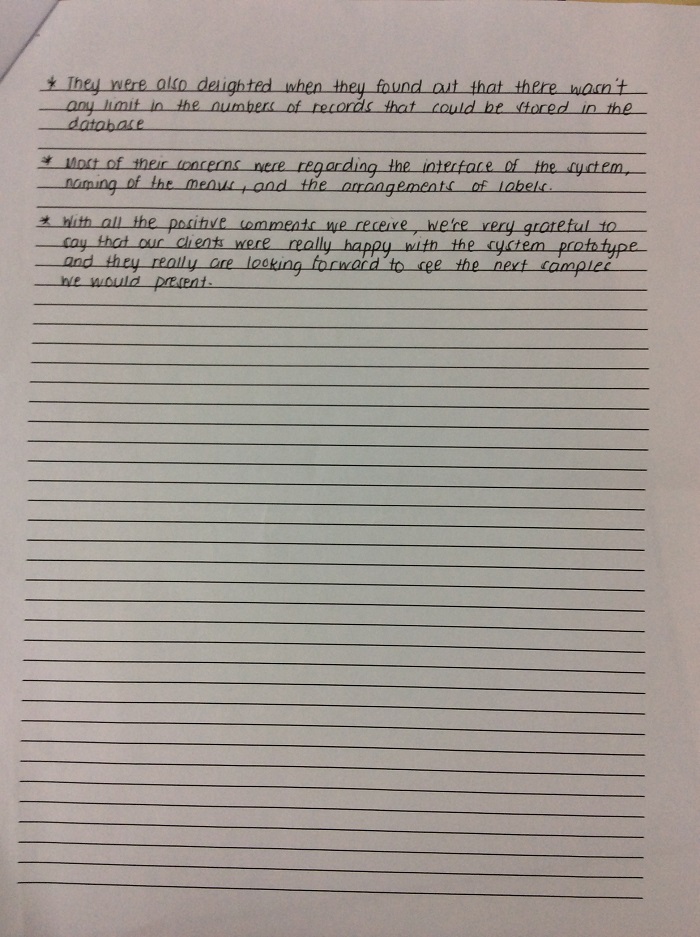 * They were also delighted when they found out that there wasn't
any limit in the numbers of records that could be stored in the
database
* Most of their concerns were regarding the interface of the system,
naming of the menus, and the arrangements of labels.
* With all the positive comments we receive, we're very grateful to
say that our clients were really happy with the system prototype
and they really are looking forward to see the next samples
we would present.